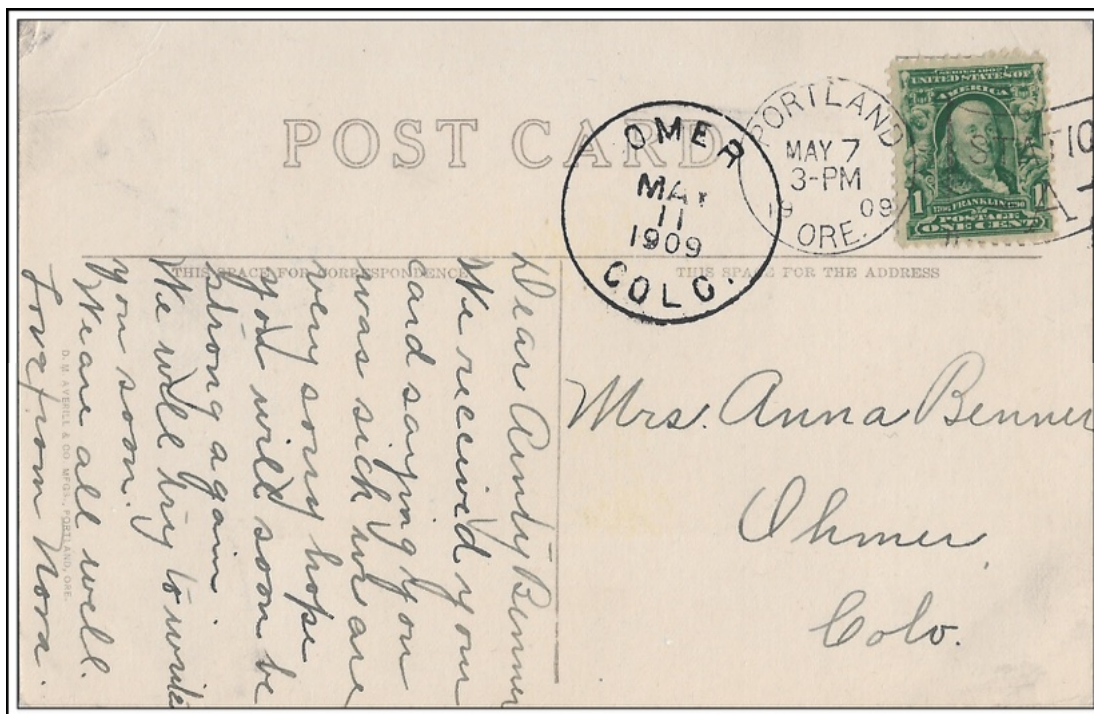 POST CARD
OMER
MAY
11
1909
COLO.
PORTLAND
MAY 7
3-PM
19 09
ORE.
STATIO
A
SERIES 1902
UNITED STATES OF
AMERICA
1 1
FRANKLIN
POSTAGE
ONE CENT
THIS SPACE FOR CORRESPONDENCE
THIS SPACE FOR THE ADDRESS
Dear Aunty Benner
We received your
card saying you
was sick we are
very sorry hope
you will soon be
strong again.
We will try to write
you soon.
We are all well.
Love from Nora.
D. M. AVERILL & CO. MFGS., PORTLAND, ORE.
Mrs. Anna Benner
Ohmer
Colo.